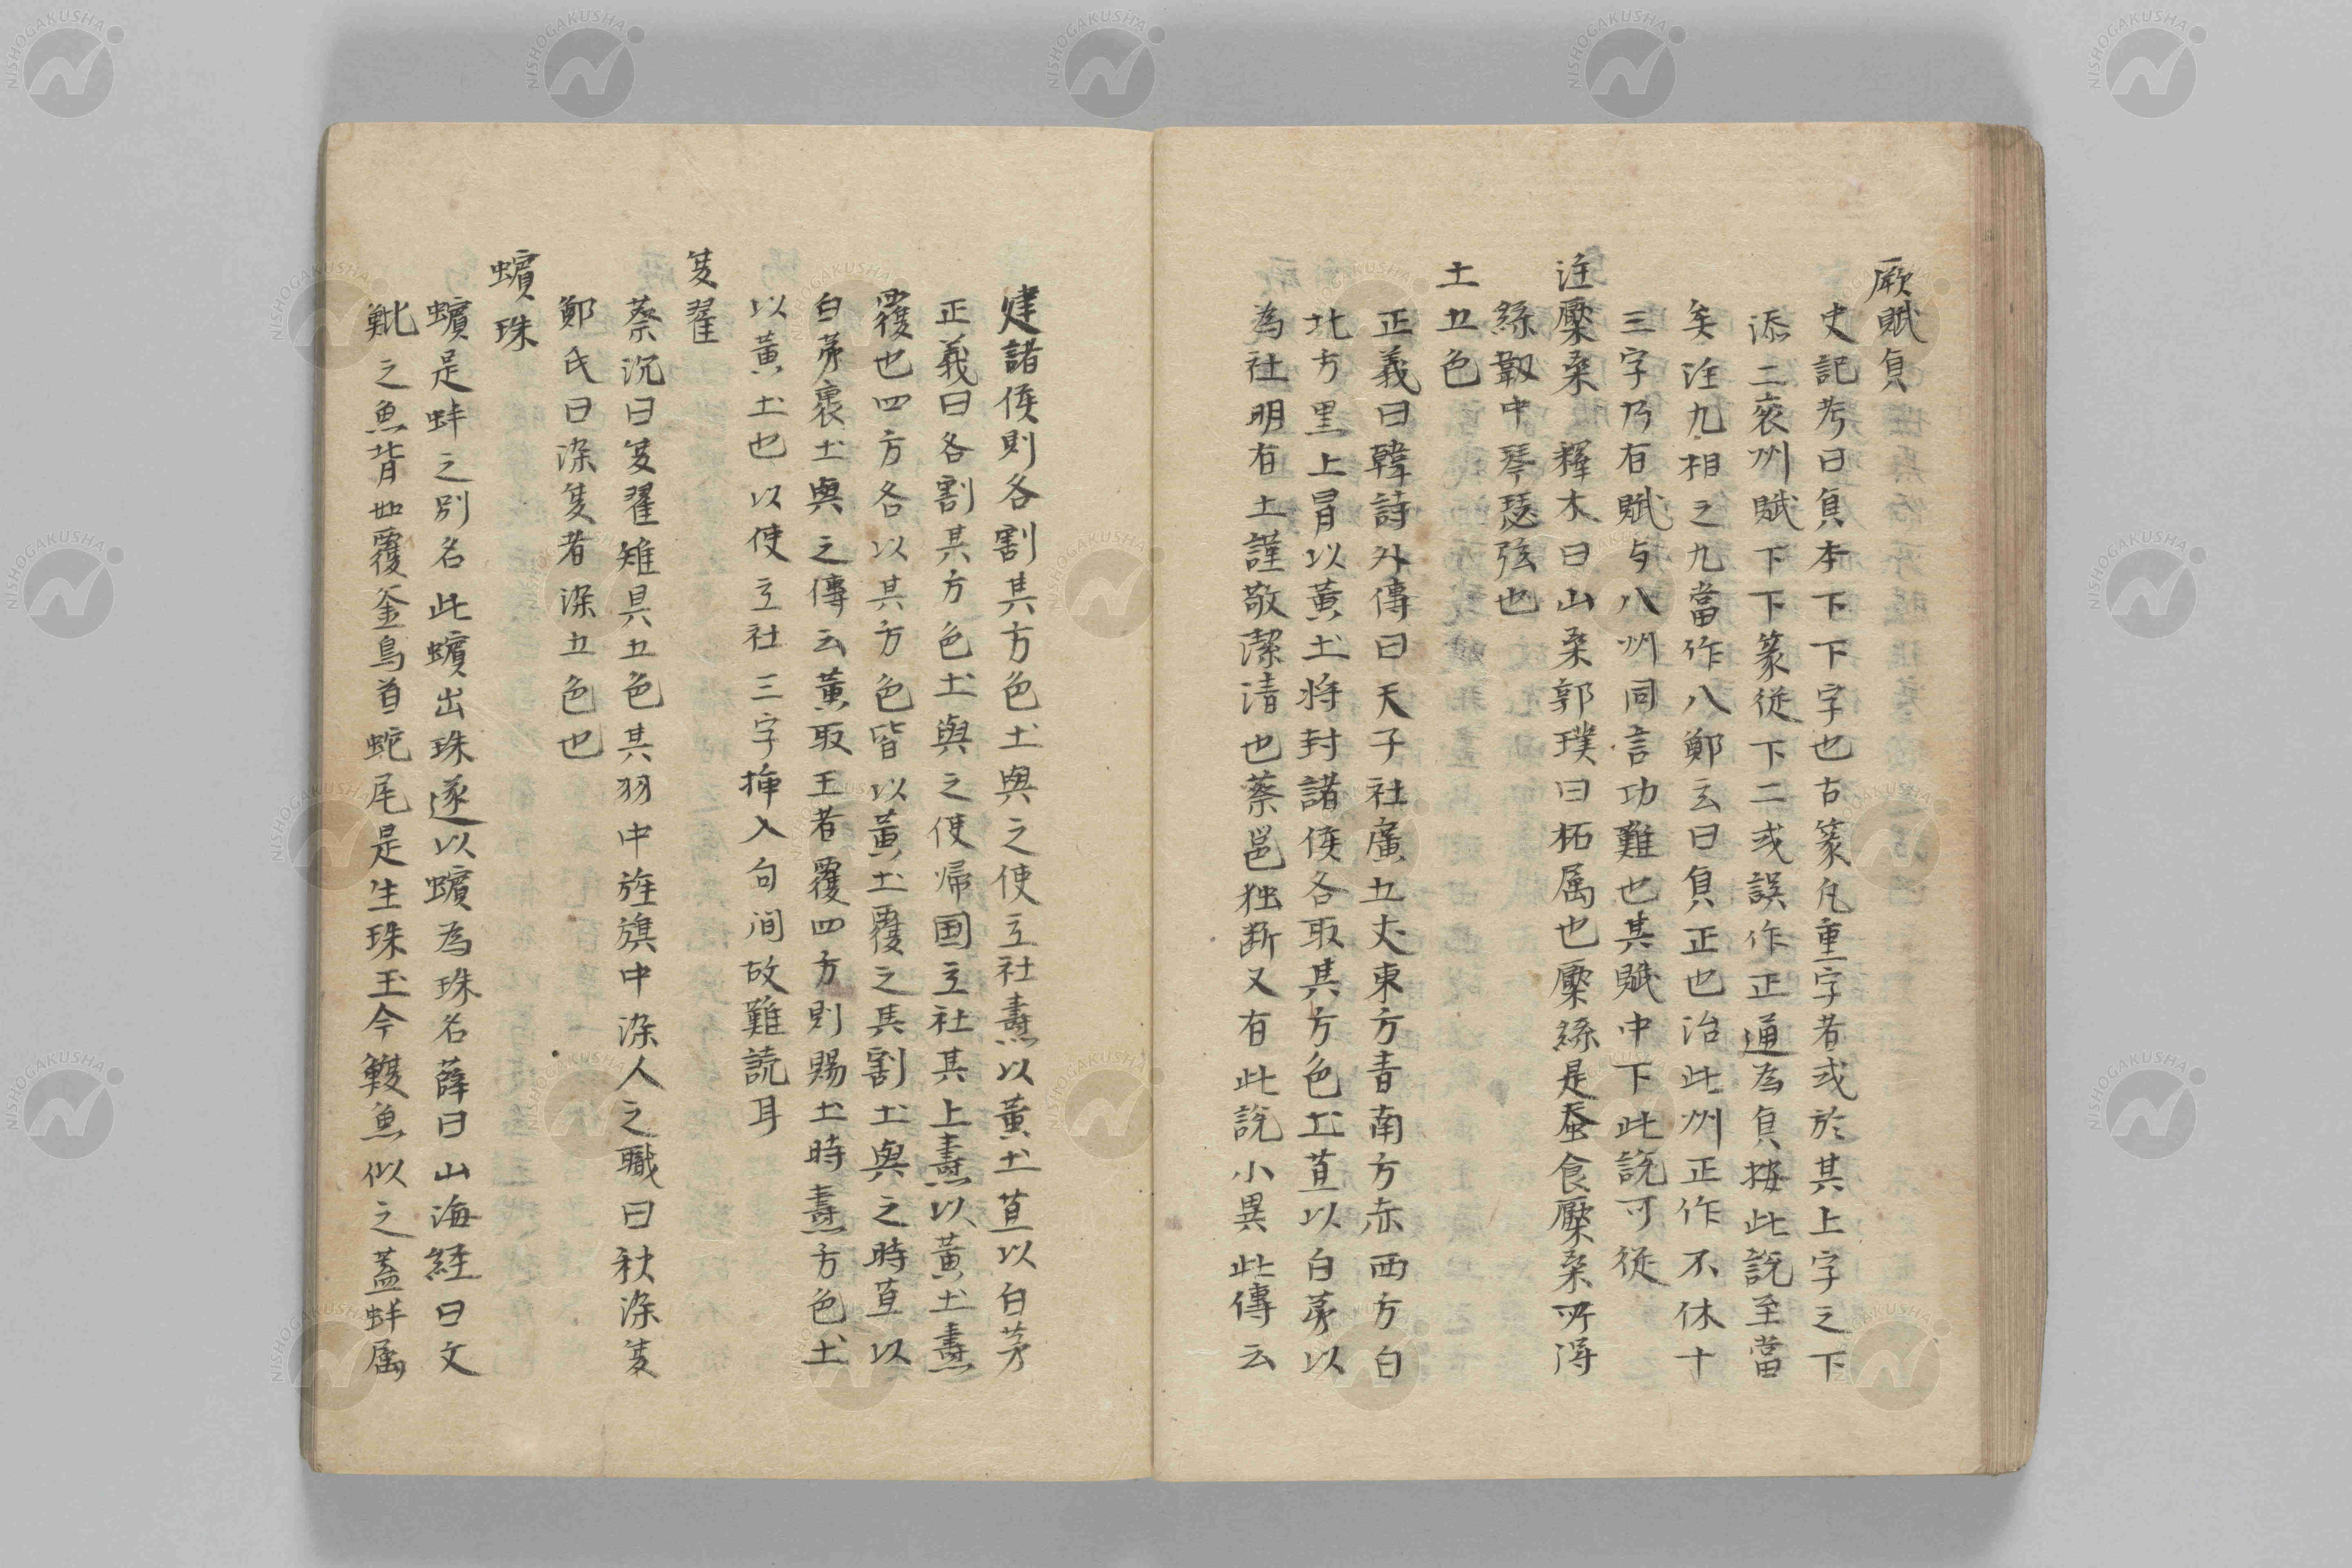 厥賦貞
史記考曰貞本下下字也古篆凡重字者或於其上字之下
添二兖州賦下下篆従下二或誤作正通為貞按此説至當
矣注九相之九當作八鄭云曰貞正也治此州正作不休十
三字乃有賦与八州同言功難也其賦中下此説可従
注檿桑 釋木曰山桑郭璞曰柘属也檿絲是蚕食檿桑所得
絲韌中琴瑟弦也
土五色
正義曰韓詩外傳曰天子社廣五丈東方青南方赤西方白
北方黒上冒以黄土将封諸侯各取其方色土苴以白茅以
為社明有土謹敬潔清也蔡邕独断又有此説小異此傳云
建諸侯則各割其方色土與之使立社燾以黄土苴以白茅
正義曰各割其方色土與之使帰国立社其上燾以黄土燾
覆也四方各以其方色皆以黄土覆之其割土與之時苴以
白茅裹土與之傳云黄取王者覆四方則賜土時燾方色土
以黄土也以使立社三字挿入句间故難読耳
夏翟
蔡沉曰夏翟雉具五色其羽中旌旗中染人之職曰秋染夏
鄭氏曰染夏者染五色也
蠙珠
蠙是蚌之别名此蠙出珠遂以蠙為珠名薛曰山海経曰文
魮之魚背如覆釜鳥首蛇尾是生珠玉今鰒魚似之蓋蚌属
NISHOGAKUSHA